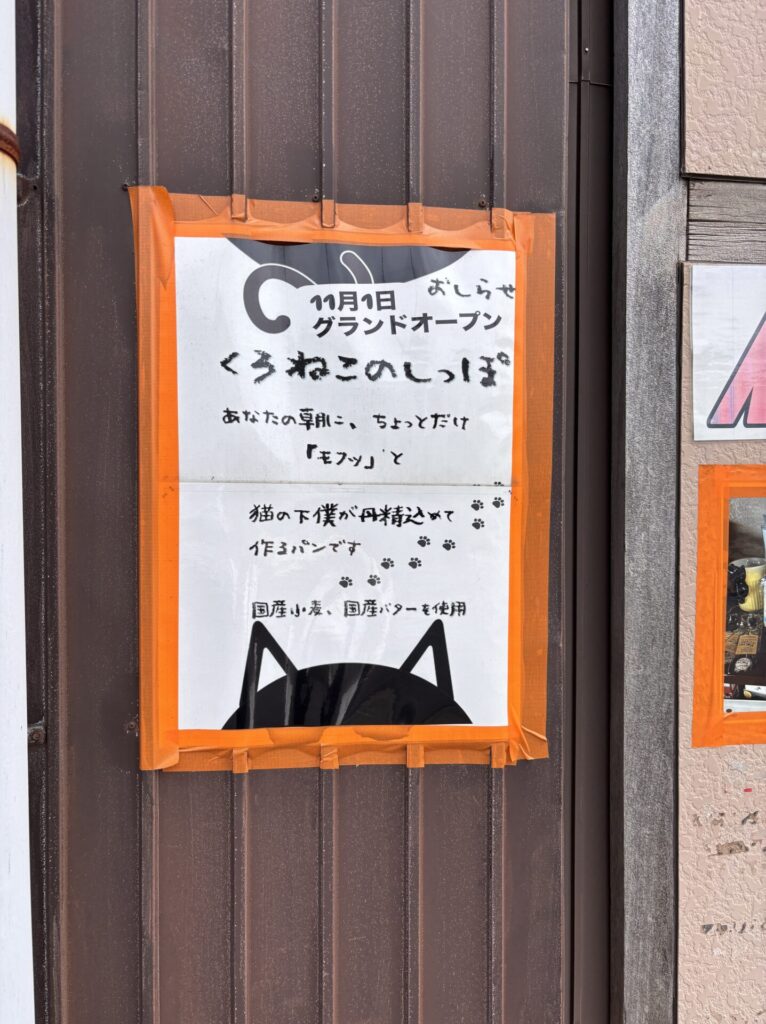 おしらせ
11月1日
グランドオープン
くろねこのしっぽ
あなたの朝に、ちょっとだけ
「モフッ」と
猫の下僕が丹精込めて
作るパンです
国産小麦、国産バターを使用